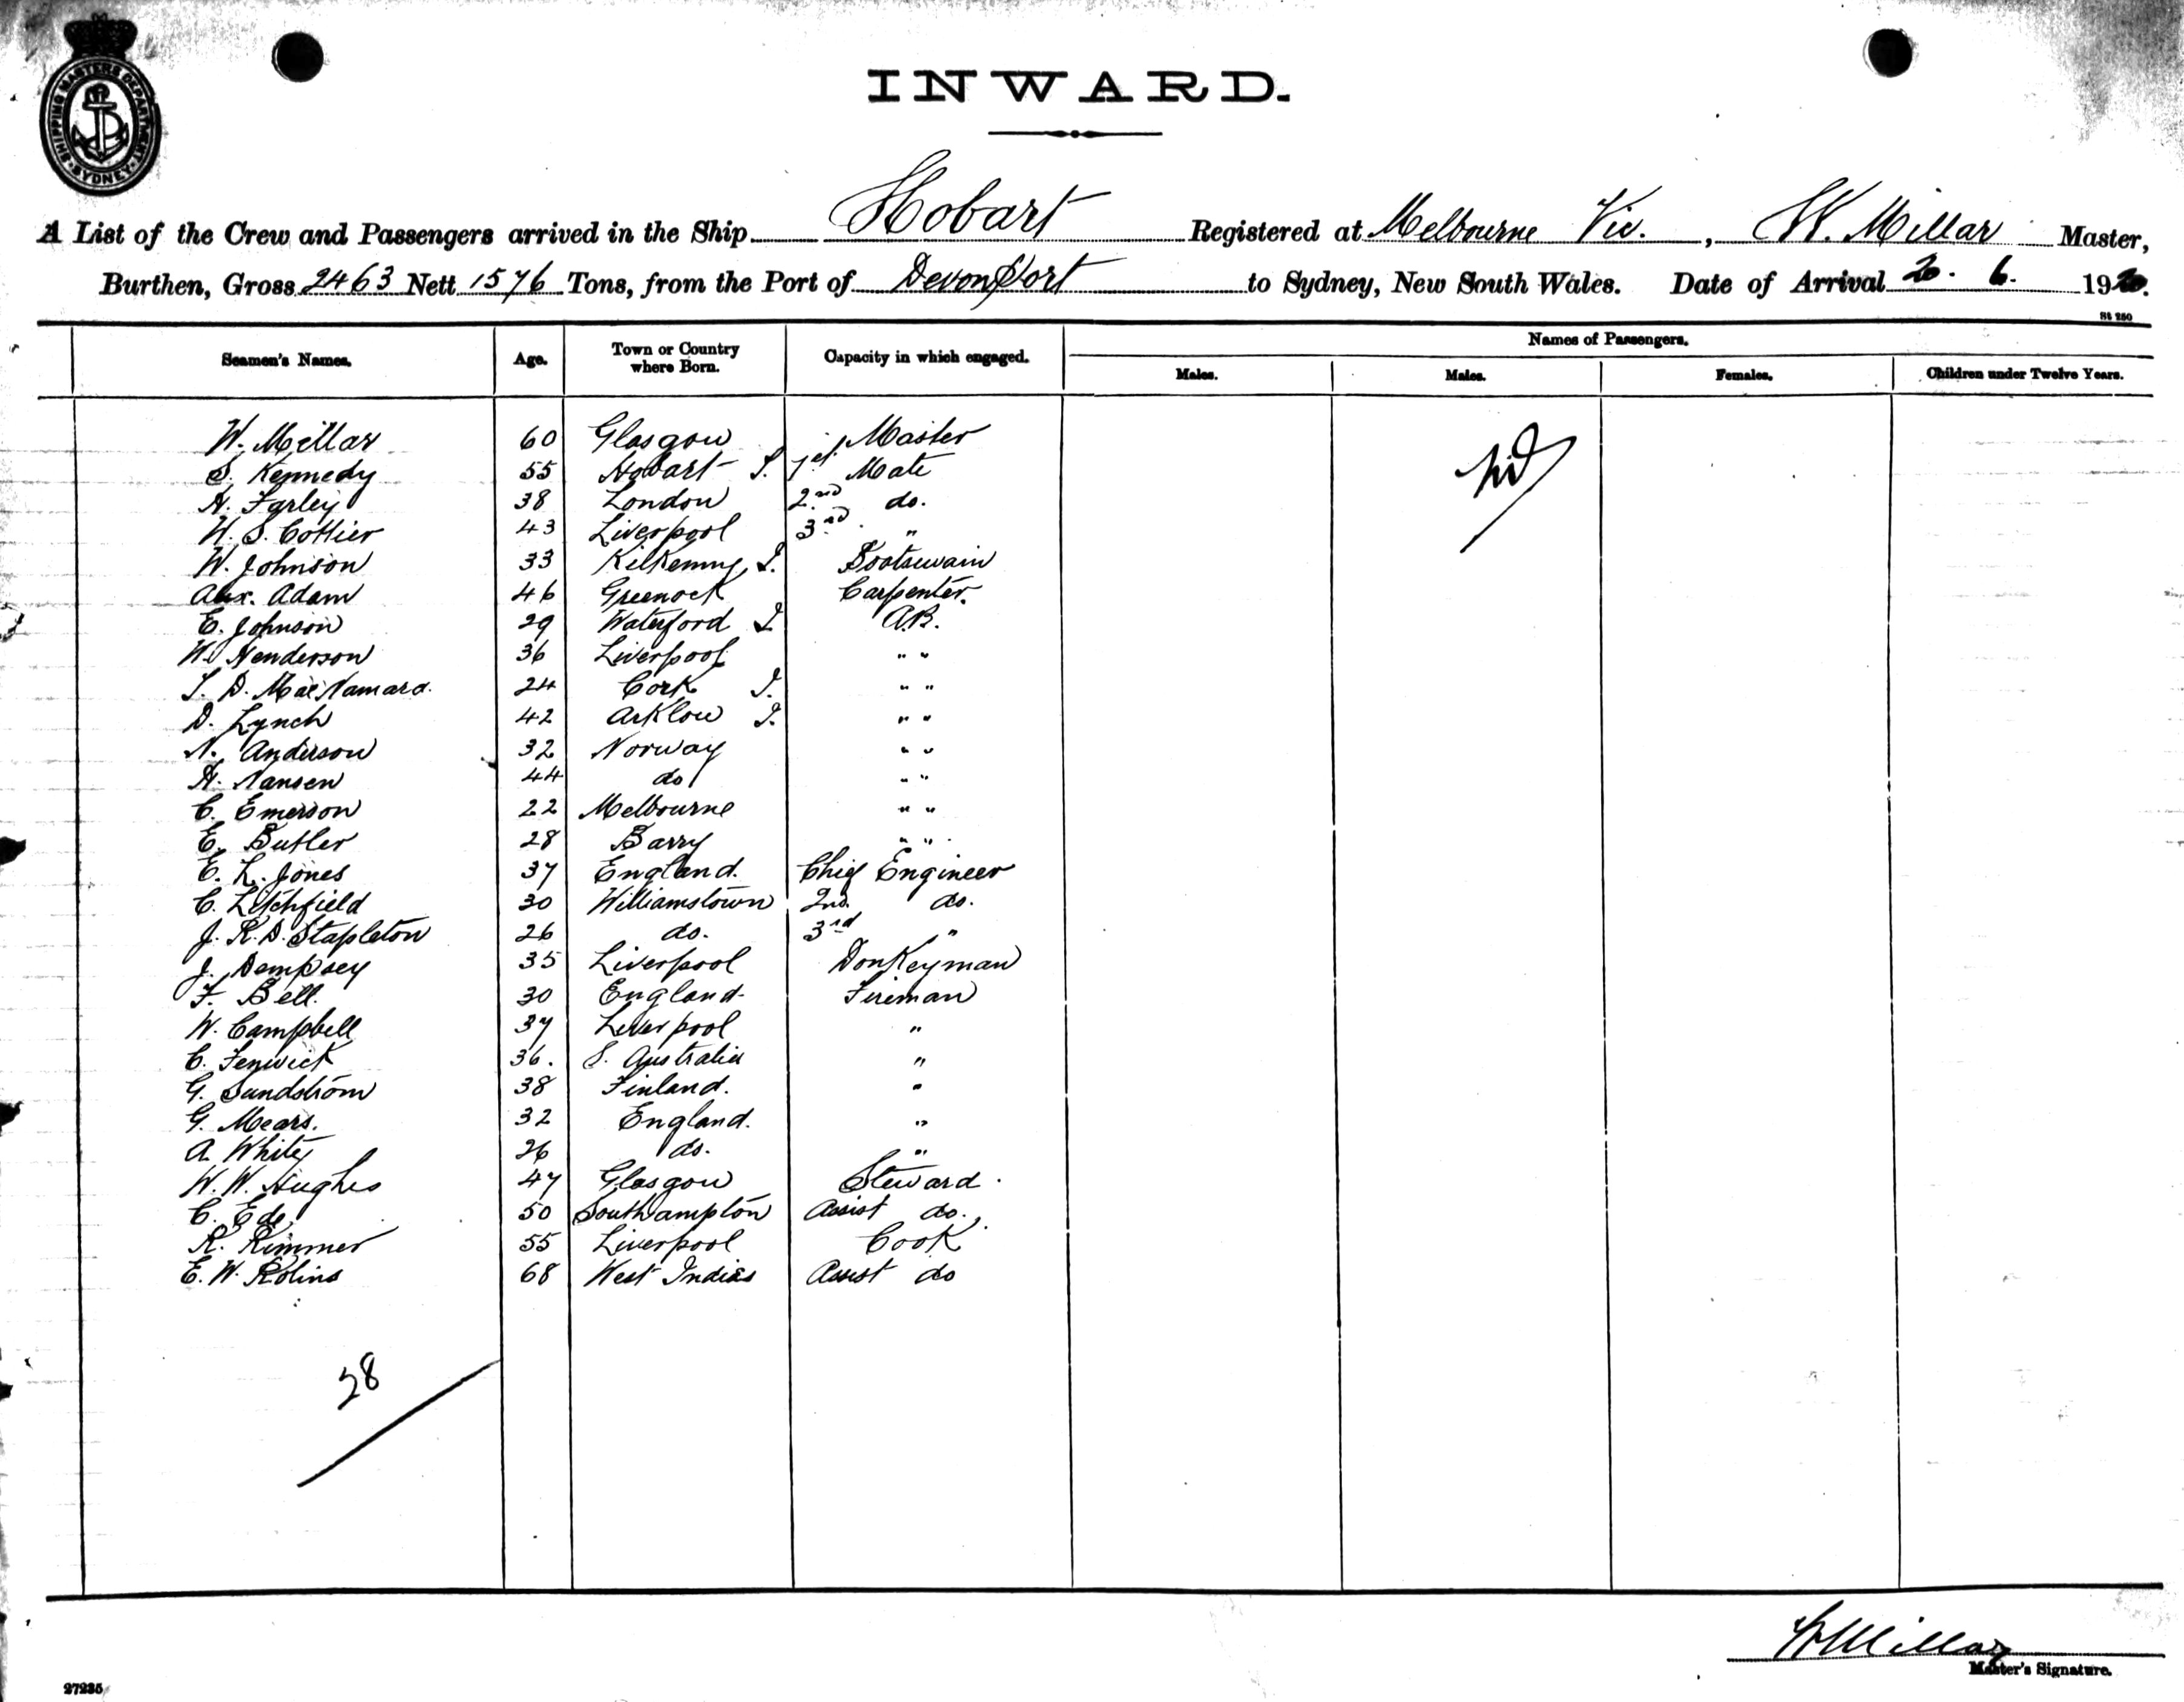 SHIPPING MASTERS DEPARTMENT
SYDNEY
INWARD.
A List of the Crew and Passengers arrived in the Ship Hobart Registered at Melbourne Vic. , W. Millar Master,
Burthen, Gross 2463 Nett 1576 Tons, from the Port of Devonport to Sydney, New South Wales. Date of Arrival 20. 6. 1920.
St 250
Seamen's Names. Age. Town or Country where Born. Capacity in which engaged. Names of Passengers.
Males. Males. Females. Children under Twelve Years.
W. Millar 60 Glasgow Master
S. Kennedy 55 Hobart T. 1st Mate
H. Farley 38 London 2nd do.
W. S. Cottier 43 Liverpool 3rd "
W. Johnson 33 Kilkenny I. Bootswain
Alex. Adam 46 Greenock Carpenter.
E. Johnson 29 Waterford I A.B.
W. Henderson 36 Liverpool " "
T. D. MacNamara. 24 Cork I. " "
D. Lynch 42 Arklow I. " "
N. Anderson 32 Norway " "
H. Hansen 44 do " "
C. Emerson 22 Melbourne " "
E. Butler 28 Barry " "
E. L. Jones 37 England. Chief Engineer
C. Litchfield 30 Williamstown 2nd. do.
J. R. D. Stapleton 26 do. 3rd "
J. Dempsey 35 Liverpool Donkeyman
F. Bell. 30 England. Fireman
W. Campbell 37 Liverpool "
C. Fenwick 36. S. Australia "
G. Sundström 38 Finland. "
G. Mears. 32 England. "
A White 26 do. "
W. W. Hughes 47 Glasgow Steward.
C. Ede 50 Southampton Assist do.
R. Rimmer 55 Liverpool Cook
E. W. Rolins 68 West Indies Assist do
Nil
28
W Millar
Master's Signature.
27235